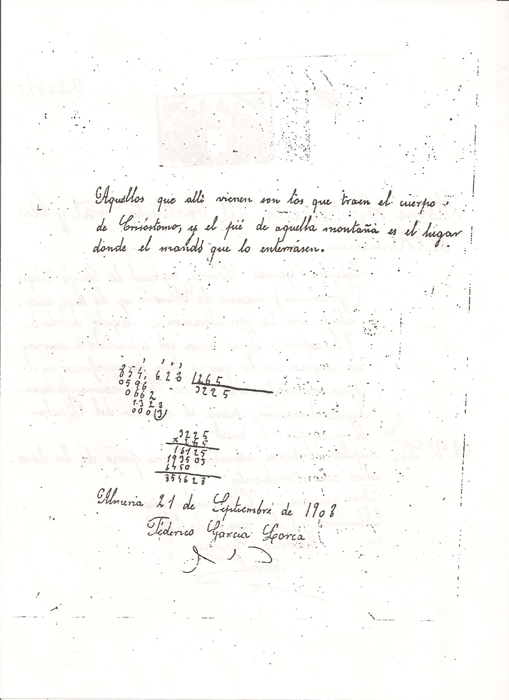 Aquellos que alli vienen son los que traen el cuerpo
de Crisóstomo, y el pié de aquella montaña es el lugar
donde el mandó que lo enterrásen.
854.628 265
0596 3225
0662
1328
000(3)
3225
× 265
16125
19350 3
6450
854628
Almeria 21 de Septiembre de 1908
Féderico García Lorca